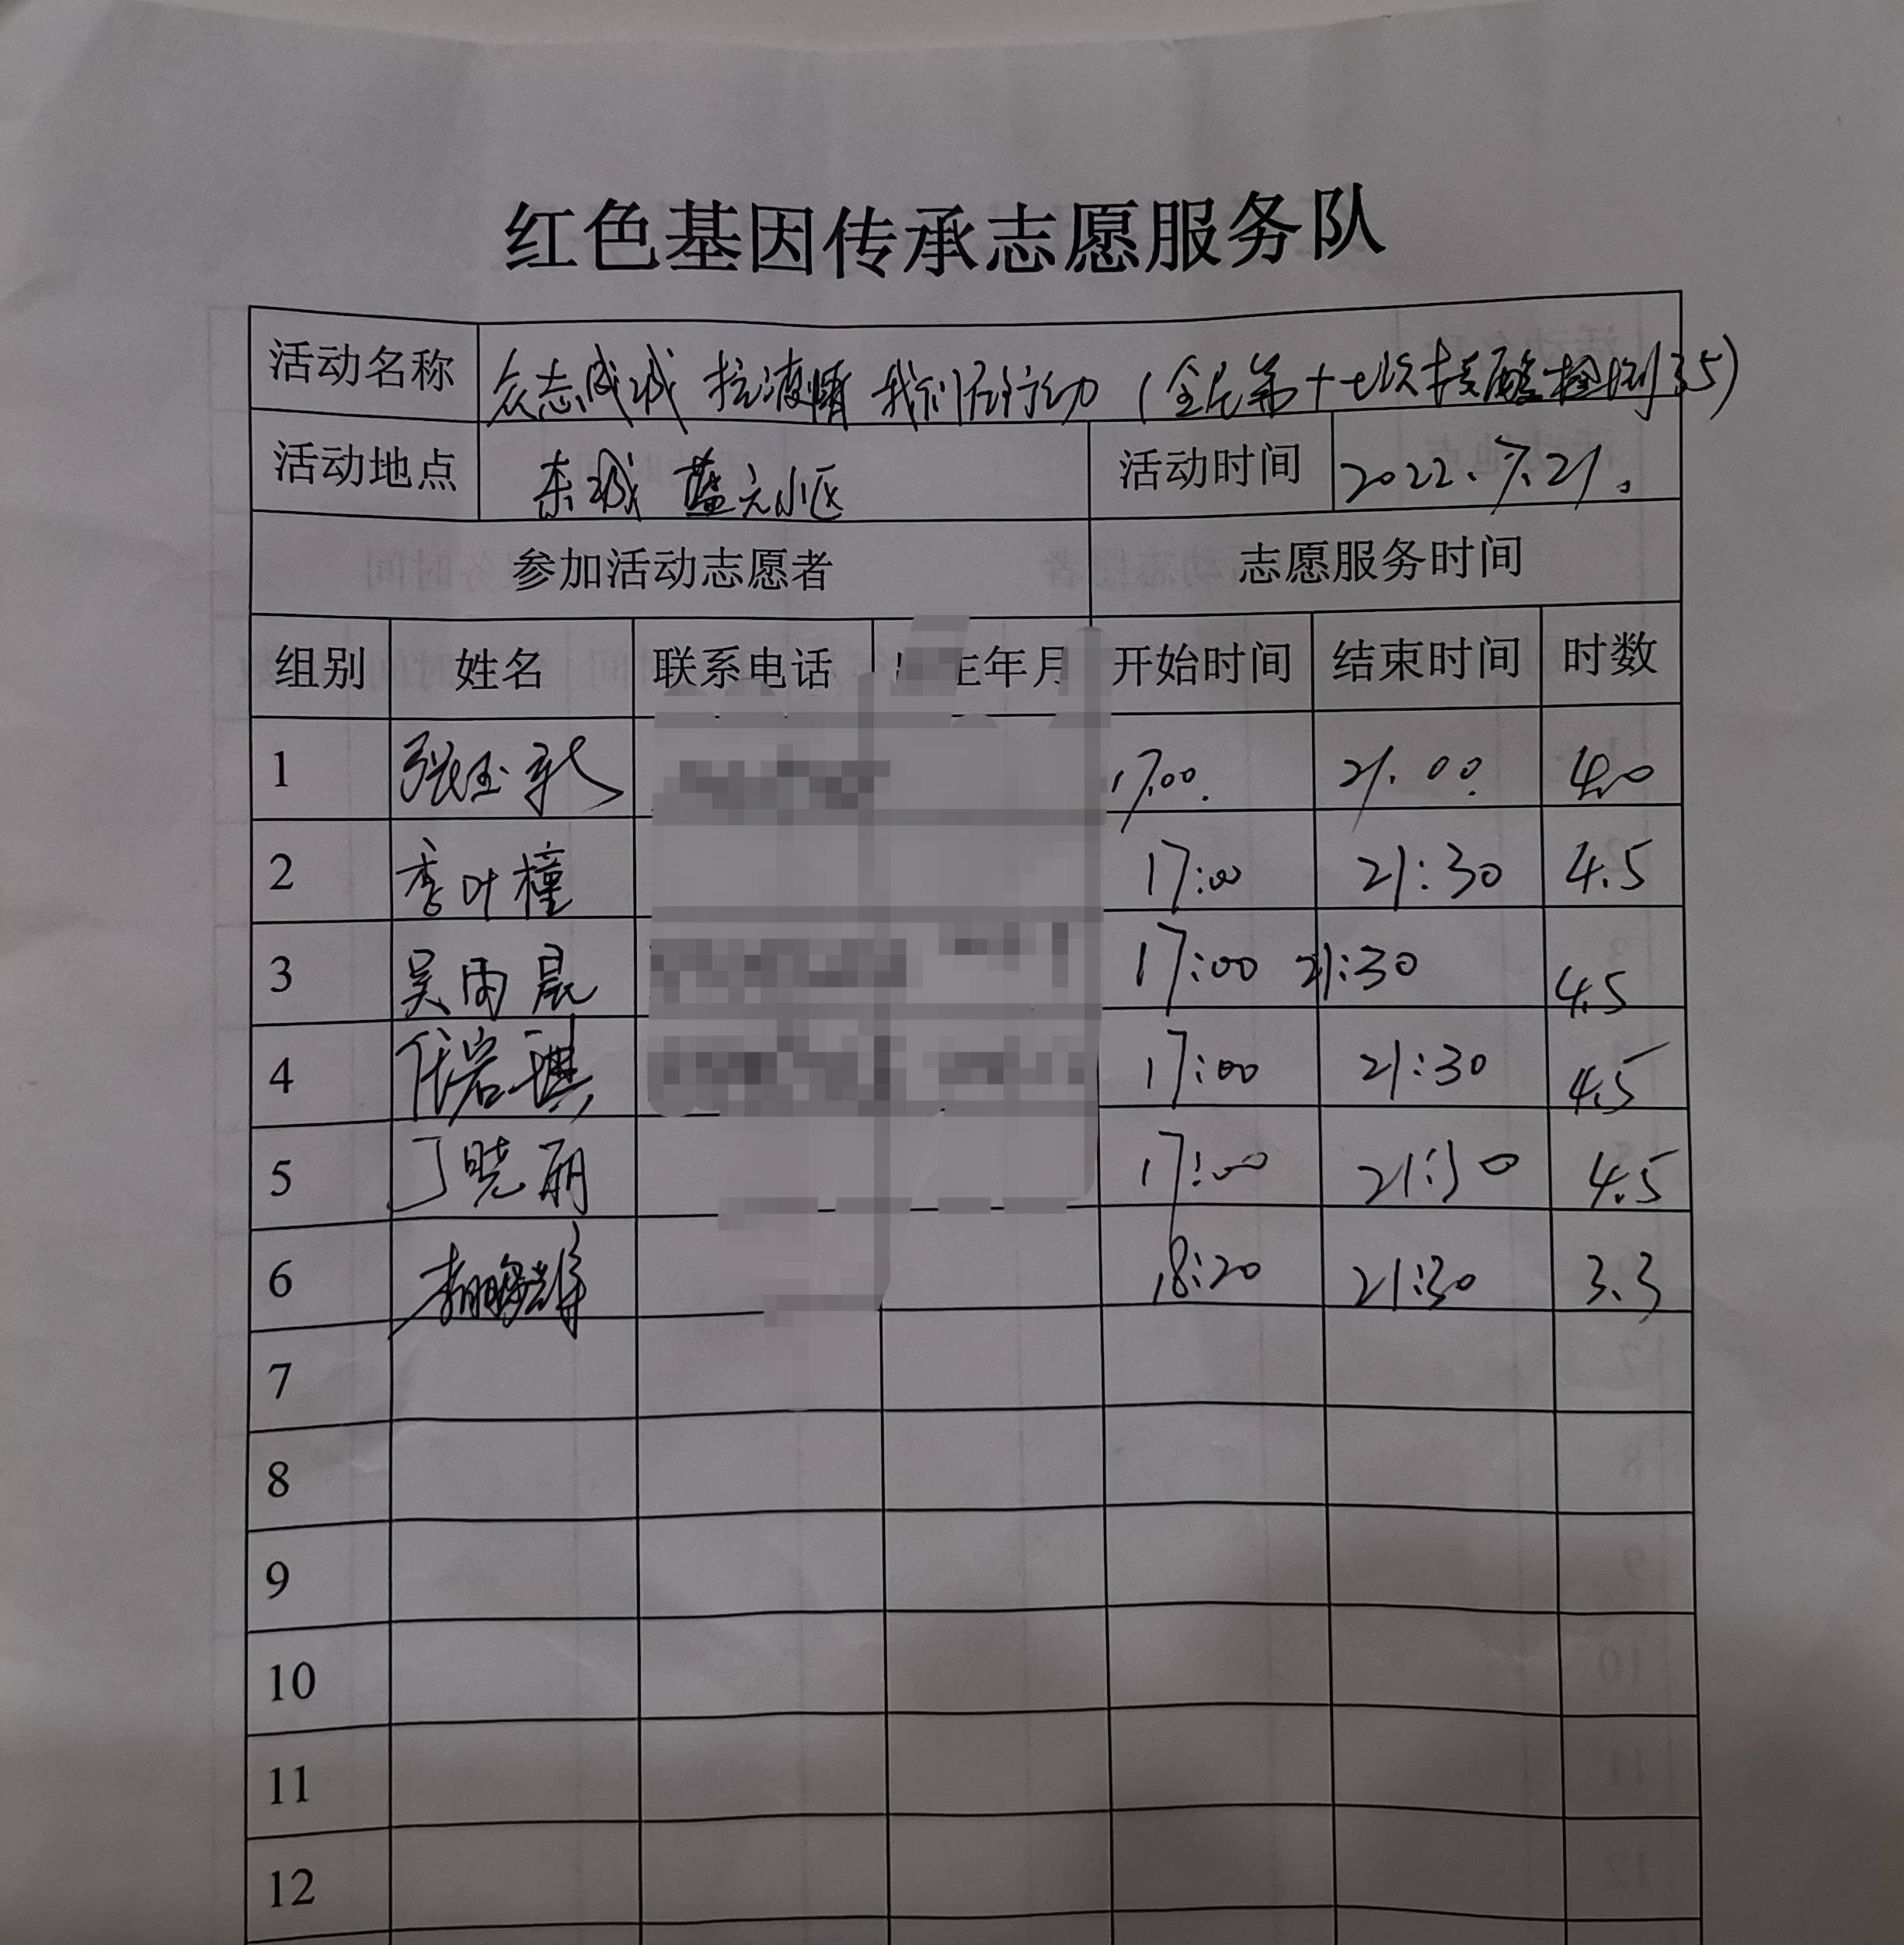 红色基因传承志愿服务队
活动名称 众志成城 抗疫情 我们在行动 (全民第十七次核酸检测35)
活动地点 东城 蓝天小区 活动时间 2022.7.21.
参加活动志愿者 志愿服务时间
组别 姓名 联系电话 生年月 开始时间 结束时间 时数
1 张玉 17.00. 21.00. 4.0
2 李叶橦 17:00 21:30 4.5
3 吴雨晨 17:00 21:30 4.5
4 任岩琪 17:00 21:30 4.5
5 丁晓丽 17:00 21:30 4.5
6 18:20 21:30 3.3
7
8
9
10
11
12